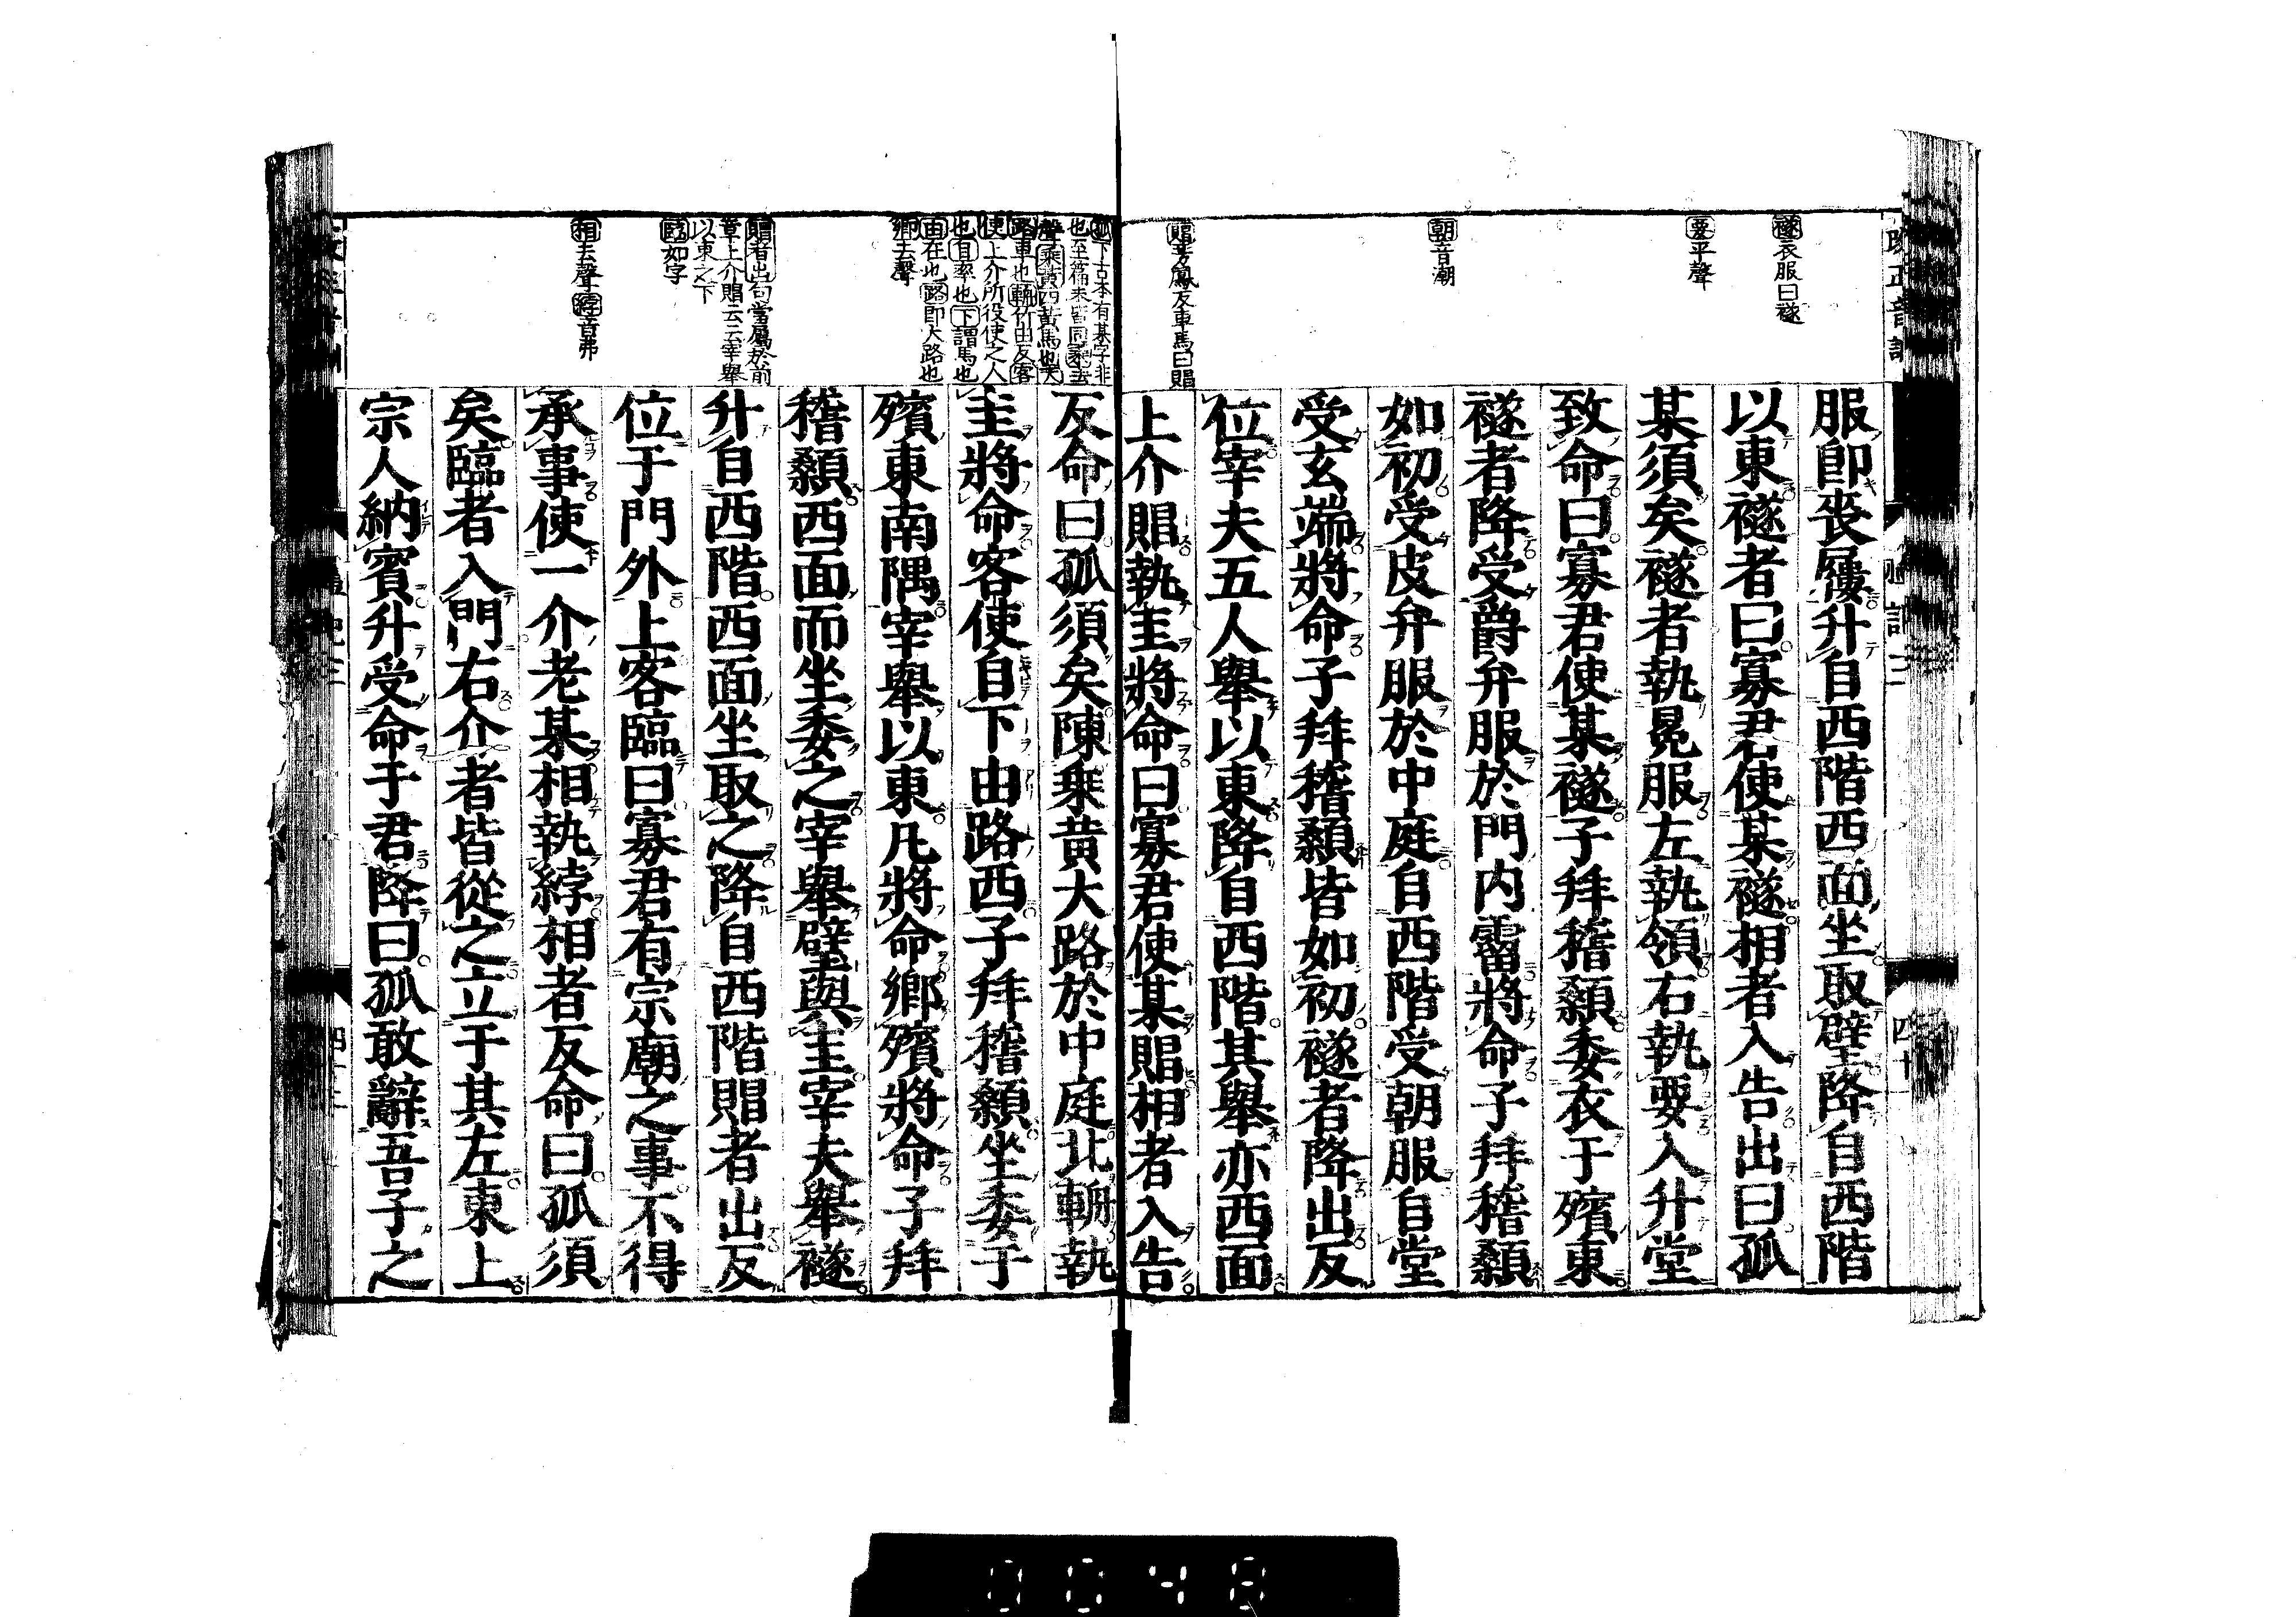 襚衣服曰襚
要平聲
朝音潮
賵芳鳳反車馬曰賵
服即喪屨升自西階西面坐取璧降自西階
以東襚者曰寡君使某襚相者入告出曰孤
某須矣襚者執冕服左執領右執要入升堂
致命曰寡君使某襚子拜稽顙委衣于殯東
襚者降受爵弁服於門内霤將命子拜稽顙
如初受皮弁服於中庭自西階受朝服自堂
受玄端將命子拜稽顙皆如初襚者降出反
位宰夫五人舉以東降自西階其舉亦西面
上介賵執圭將命曰寡君使某賵相者入告
孤下古本有某字非
也至篇末皆同乘去
聲乘黄四黄馬也大
路車也輈竹由反客
使上介所役使之人
也自率也下謂馬也
由在也路即大路也
鄉去聲
賵者出句當屬於前
章上介賵云云宰舉
以東之下
臨如字
相去聲綍音弗
反命曰孤須矣陳乘黄大路於中庭北輈執
圭將命客使自下由路西子拜稽顙坐委于
殯東南隅宰舉以東凡將命鄉殯將命子拜
稽顙西面而坐委之宰舉璧與圭宰夫舉襚
升自西階西面坐取之降自西階賵者出反
位于門外上客臨曰寡君有宗廟之事不得
承事使一介老某相執綍相者反命曰孤須
矣臨者入門右介者皆從之立于其左東上
宗人納賓升受命于君降曰孤敢辭吾子之